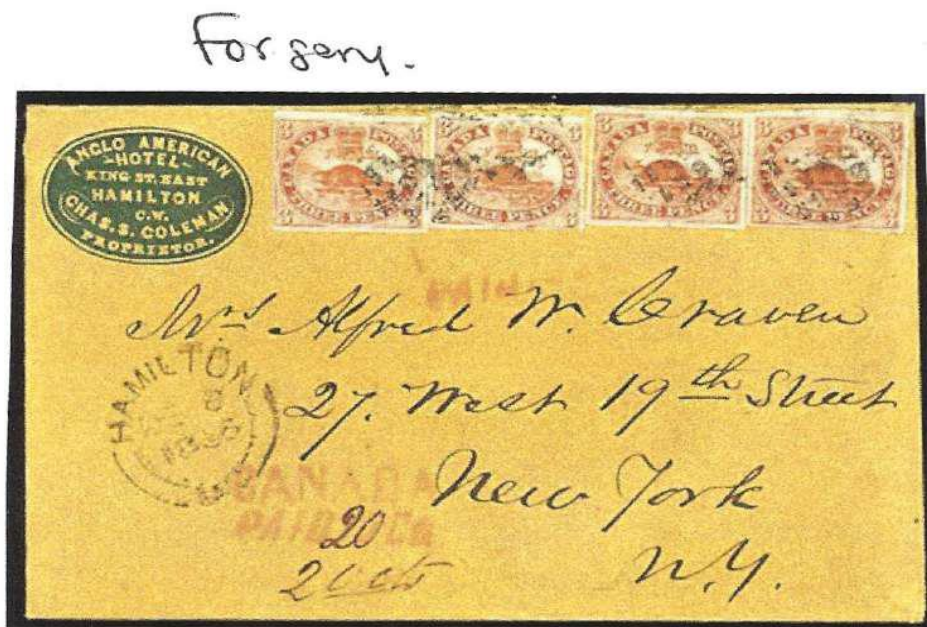 Forgery.
ANGLO AMERICAN
-HOTEL-
KING ST. EAST
HAMILTON
C.W.
CHAS. S. COLEMAN
PROPRIETOR.
3 CANADA POSTAGE 3
3 THREE PENCE 3
3 CANADA POSTAGE 3
3 THREE PENCE 3
3 CANADA POSTAGE 3
3 THREE PENCE 3
3 CANADA POSTAGE 3
3 THREE PENCE 3
PAID
Mrs Alfred W. Craven
27. West 19th Street
New York
N.Y.
HAMILTON
CANADA
PAID
20
2 cts